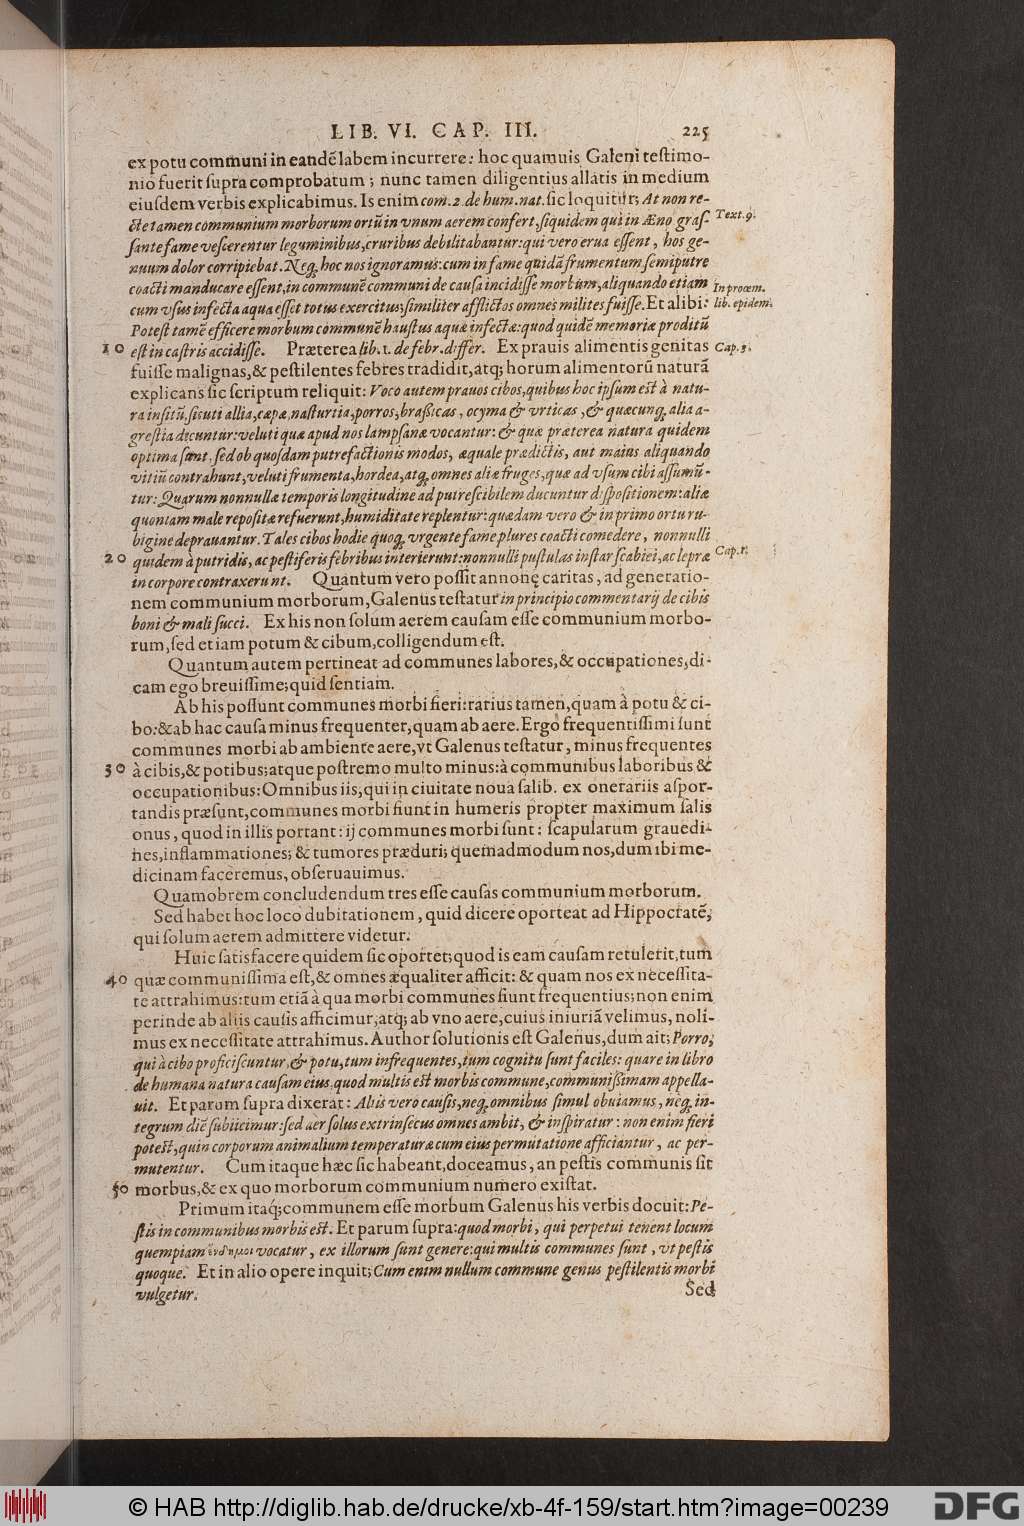 LIB. VI. CAP. III. 225
ex potu communi in eandē labem incurrere: hoc quamuis Galeni testimo-
nio fuerit supra comprobatum; nunc tamen diligentius allatis in medium
eiusdem verbis explicabimus. Is enim com. 2. de hum. nat. sic loquitur; At non re-
cte tamen communium morborum ortū in vnum aerem confert, siquidem qui in Æno gras- Text. 9.
sante fame vescerentur leguminibus, cruribus debilitabantur: qui vero erua essent, hos ge-
nuum dolor corripiebat. Neq; hoc nos ignoramus: cum in fame quidā frumentum semiputre
coacti manducare essent, in communē communi de causa incidisse morbum, aliquando etiam In proœm.
cum vsus infecta aqua esset totus exercitus; similiter afflictos omnes milites fuisse. Et alibi: lib. epidem.
Potest tamē efficere morbum communē haustus aquæ infectæ: quod quidē memoriæ proditū
10 est in castris accidisse. Præterea lib. 1. de febr. differ. Ex prauis alimentis genitas Cap. 3.
fuisse malignas, & pestilentes febres tradidit, atq; horum alimentorū naturā
explicans sic scriptum reliquit: Voco autem prauos cibos, quibus hoc ipsum est à natu-
ra insitū, sicuti allia, cæpæ, nasturtia, porros, braßicas, ocyma & vrticas, & quæcunq; alia a-
grestia dicuntur: veluti quæ apud nos lampsanæ vocantur: & quæ præterea natura quidem
optima sunt, sed ob quosdam putrefactionis modos, æquale prædictis, aut maius aliquando
vitiū contrahunt, veluti frumenta, hordea, atq; omnes aliæ fruges, quæ ad vsum cibi assumū-
tur: Quarum nonnullæ temporis longitudine ad putrescibilem ducuntur dispositionem: aliæ
quoniam male repositæ refuerunt, humiditate replentur: quædam vero & in primo ortu ru-
bigine deprauantur. Tales cibos hodie quoq; vrgente fame plures coacti comedere, nonnulli
20 quidem à putridis, ac pestiferis febribus interierunt: nonnulli pustulas instar scabiei, ac lepræ Cap. 1.
in corpore contraxerunt. Quantum vero possit annonę caritas, ad generatio-
nem communium morborum, Galenus testatur in principio commentarij de cibis
boni & mali succi. Ex his non solum aerem causam esse communium morbo-
rum, sed etiam potum & cibum, colligendum est.
Quantum autem pertineat ad communes labores, & occupationes, di-
cam ego breuissime; quid sentiam.
Ab his possunt communes morbi fieri: rarius tamen, quam à potu & ci-
bo: & ab hac causa minus frequenter, quam ab aere. Ergo frequentissimi sunt
communes morbi ab ambiente aere, vt Galenus testatur, minus frequentes
30 à cibis, & potibus; atque postremo multo minus: à communibus laboribus &
occupationibus: Omnibus iis, qui in ciuitate noua salib. ex onerariis aspor-
tandis præsunt, communes morbi fiunt in humeris propter maximum salis
onus, quod in illis portant: ij communes morbi sunt: scapularum grauedi-
nes, inflammationes; & tumores præduri; quemadmodum nos, dum ibi me-
dicinam faceremus, obseruauimus.
Quamobrem concludendum tres esse causas communium morborum.
Sed habet hoc loco dubitationem, quid dicere oporteat ad Hippocratē,
qui solum aerem admittere videtur.
Huic satisfacere quidem sic oportet; quod is eam causam retulerit, tum
40 quæ communissima est, & omnes æqualiter afficit: & quam nos ex necessita-
te attrahimus: tum etiā à qua morbi communes fiunt frequentius; non enim
perinde ab aliis causis afficimur, atq; ab vno aere, cuius iniuriā velimus, noli-
mus ex necessitate attrahimus. Author solutionis est Galenus, dum ait; Porro,
qui à cibo proficiscuntur, & potu, tum infrequentes, tum cognitu sunt faciles: quare in libro
de humana natura causam eius, quod multis est morbis commune, communißimam appella-
uit. Et parum supra dixerat: Aliis vero causis, neq; omnibus simul obuiamus, neq; in-
tegrum diē subiicimur: sed aer solus extrinsecus omnes ambit, & inspiratur: non enim fieri
potest, quin corporum animalium temperaturæ cum eius permutatione afficiantur, ac per-
mutentur. Cum itaque hæc sic habeant, doceamus, an pestis communis sit
50 morbus, & ex quo morborum communium numero existat.
Primum itaq; communem esse morbum Galenus his verbis docuit: Pe-
stis in communibus morbis est. Et parum supra: quod morbi, qui perpetui tenent locum
quempiam ἔνδημοι vocatur, ex illorum sunt genere: qui multis communes sunt, vt pestis
quoque. Et in alio opere inquit; Cum enim nullum commune genus pestilentis morbi
vulgetur. Sed
© HAB http://diglib.hab.de/drucke/xb-4f-159/start.htm?image=00239
DFG